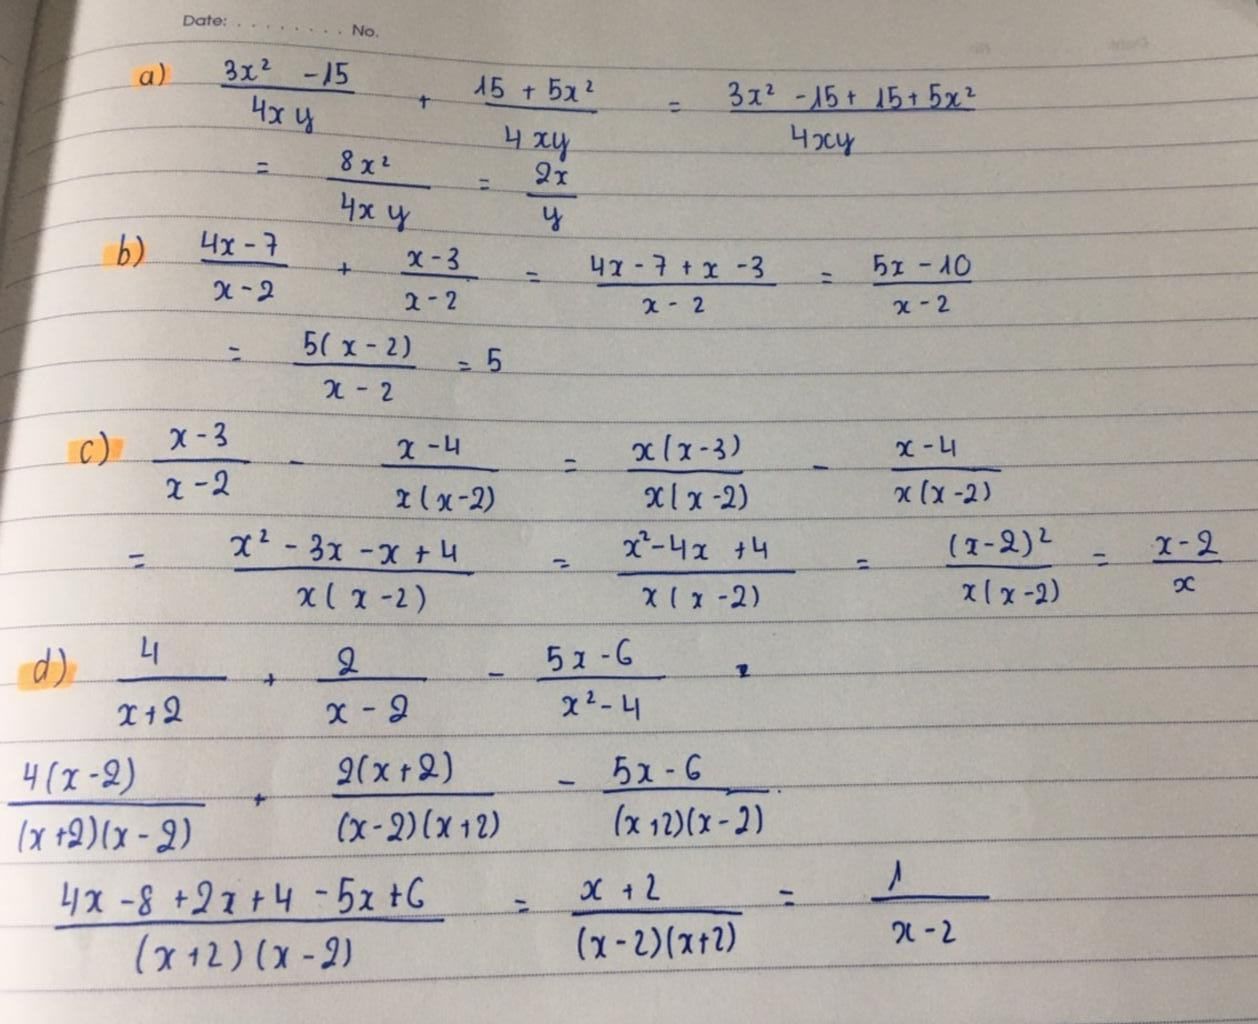 Date: . . . . . . . . No.
a) (3x² - 15)/(4xy) + (15 + 5x²)/(4xy) = (3x² - 15 + 15 + 5x²)/(4xy)
= (8x²)/(4xy) = (2x)/y
b) (4x - 7)/(x - 2) + (x - 3)/(x - 2) = (4x - 7 + x - 3)/(x - 2) = (5x - 10)/(x - 2)
= (5(x - 2))/(x - 2) = 5
c) (x - 3)/(x - 2) - (x - 4)/(x(x - 2)) = (x(x - 3))/(x(x - 2)) - (x - 4)/(x(x - 2))
= (x² - 3x - x + 4)/(x(x - 2)) = (x² - 4x + 4)/(x(x - 2)) = ((x - 2)²)/(x(x - 2)) = (x - 2)/x
d) 4/(x + 2) + 2/(x - 2) - (5x - 6)/(x² - 4)
(4(x - 2))/((x + 2)(x - 2)) + (2(x + 2))/((x - 2)(x + 2)) - (5x - 6)/((x + 2)(x - 2))
(4x - 8 + 2x + 4 - 5x + 6)/((x + 2)(x - 2)) = (x + 2)/((x - 2)(x + 2)) = 1/(x - 2)